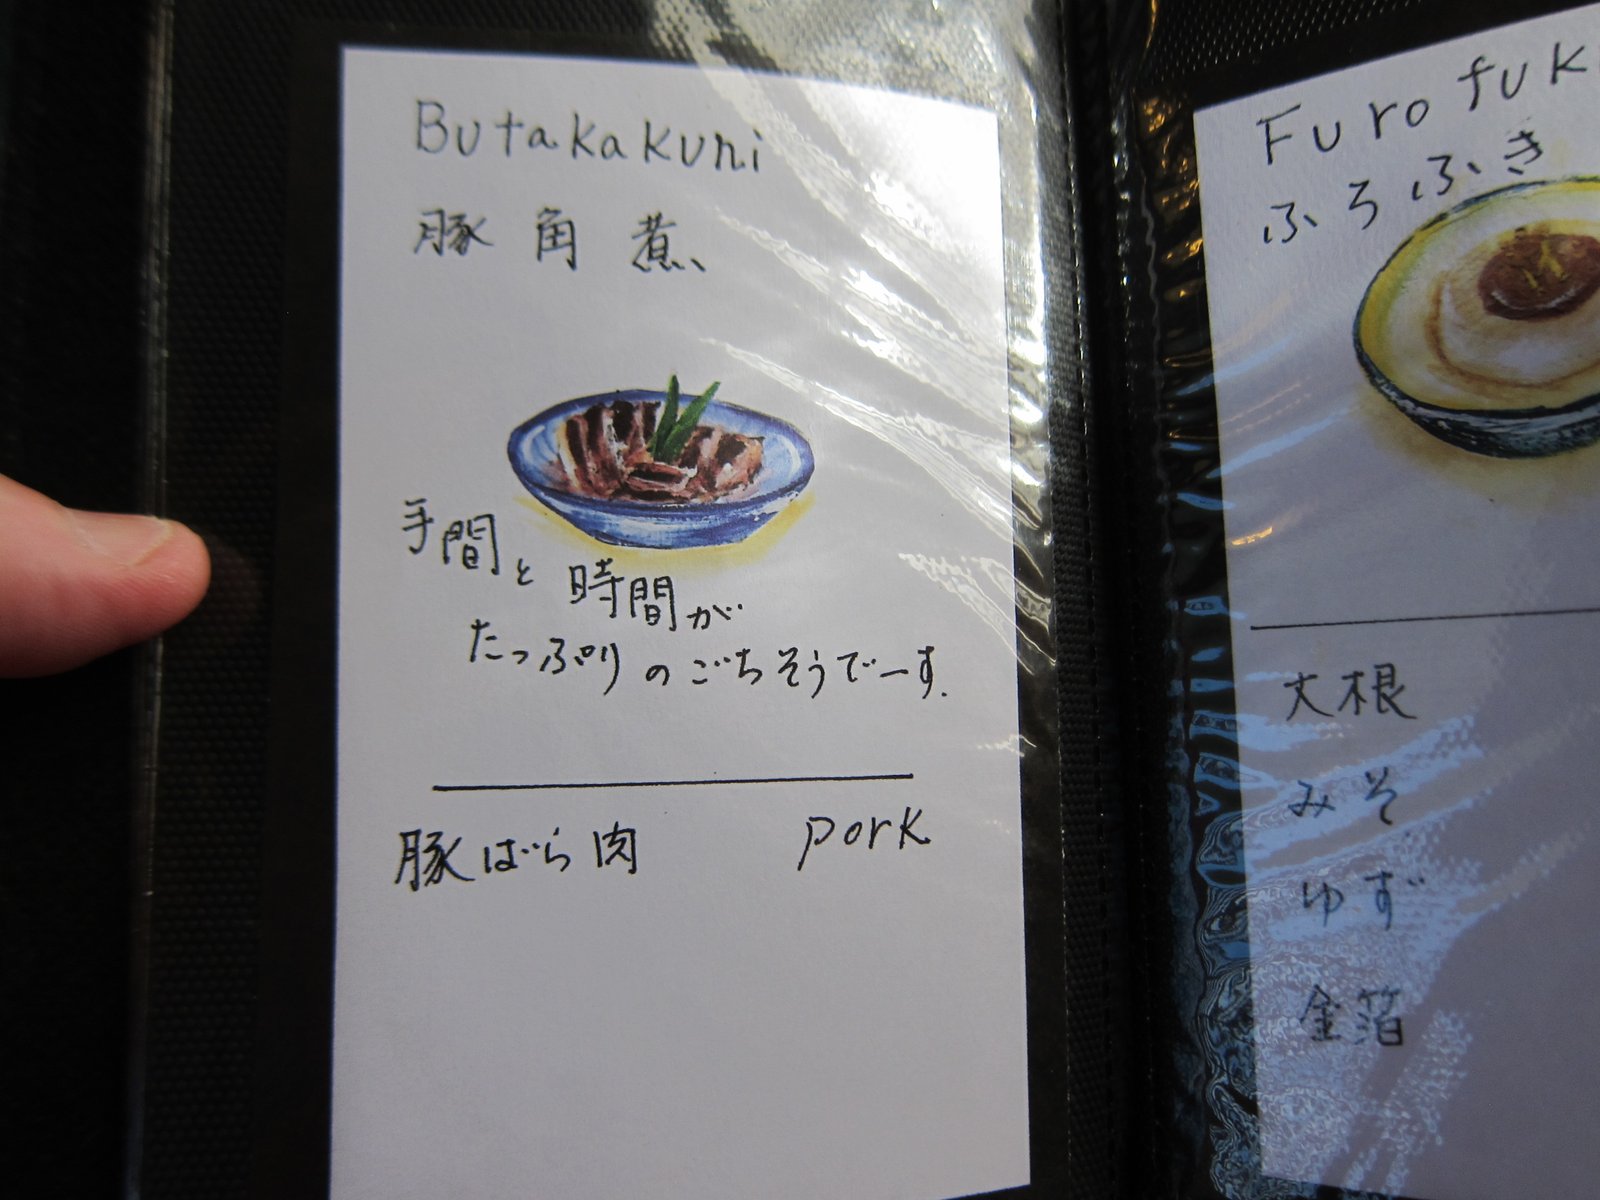 Butakakuni
豚角煮
手間と時間が
たっぷりのごちそうでーす.
豚ばら肉 pork
Furofuki
ふろふき
大根
みそ
ゆず
金箔